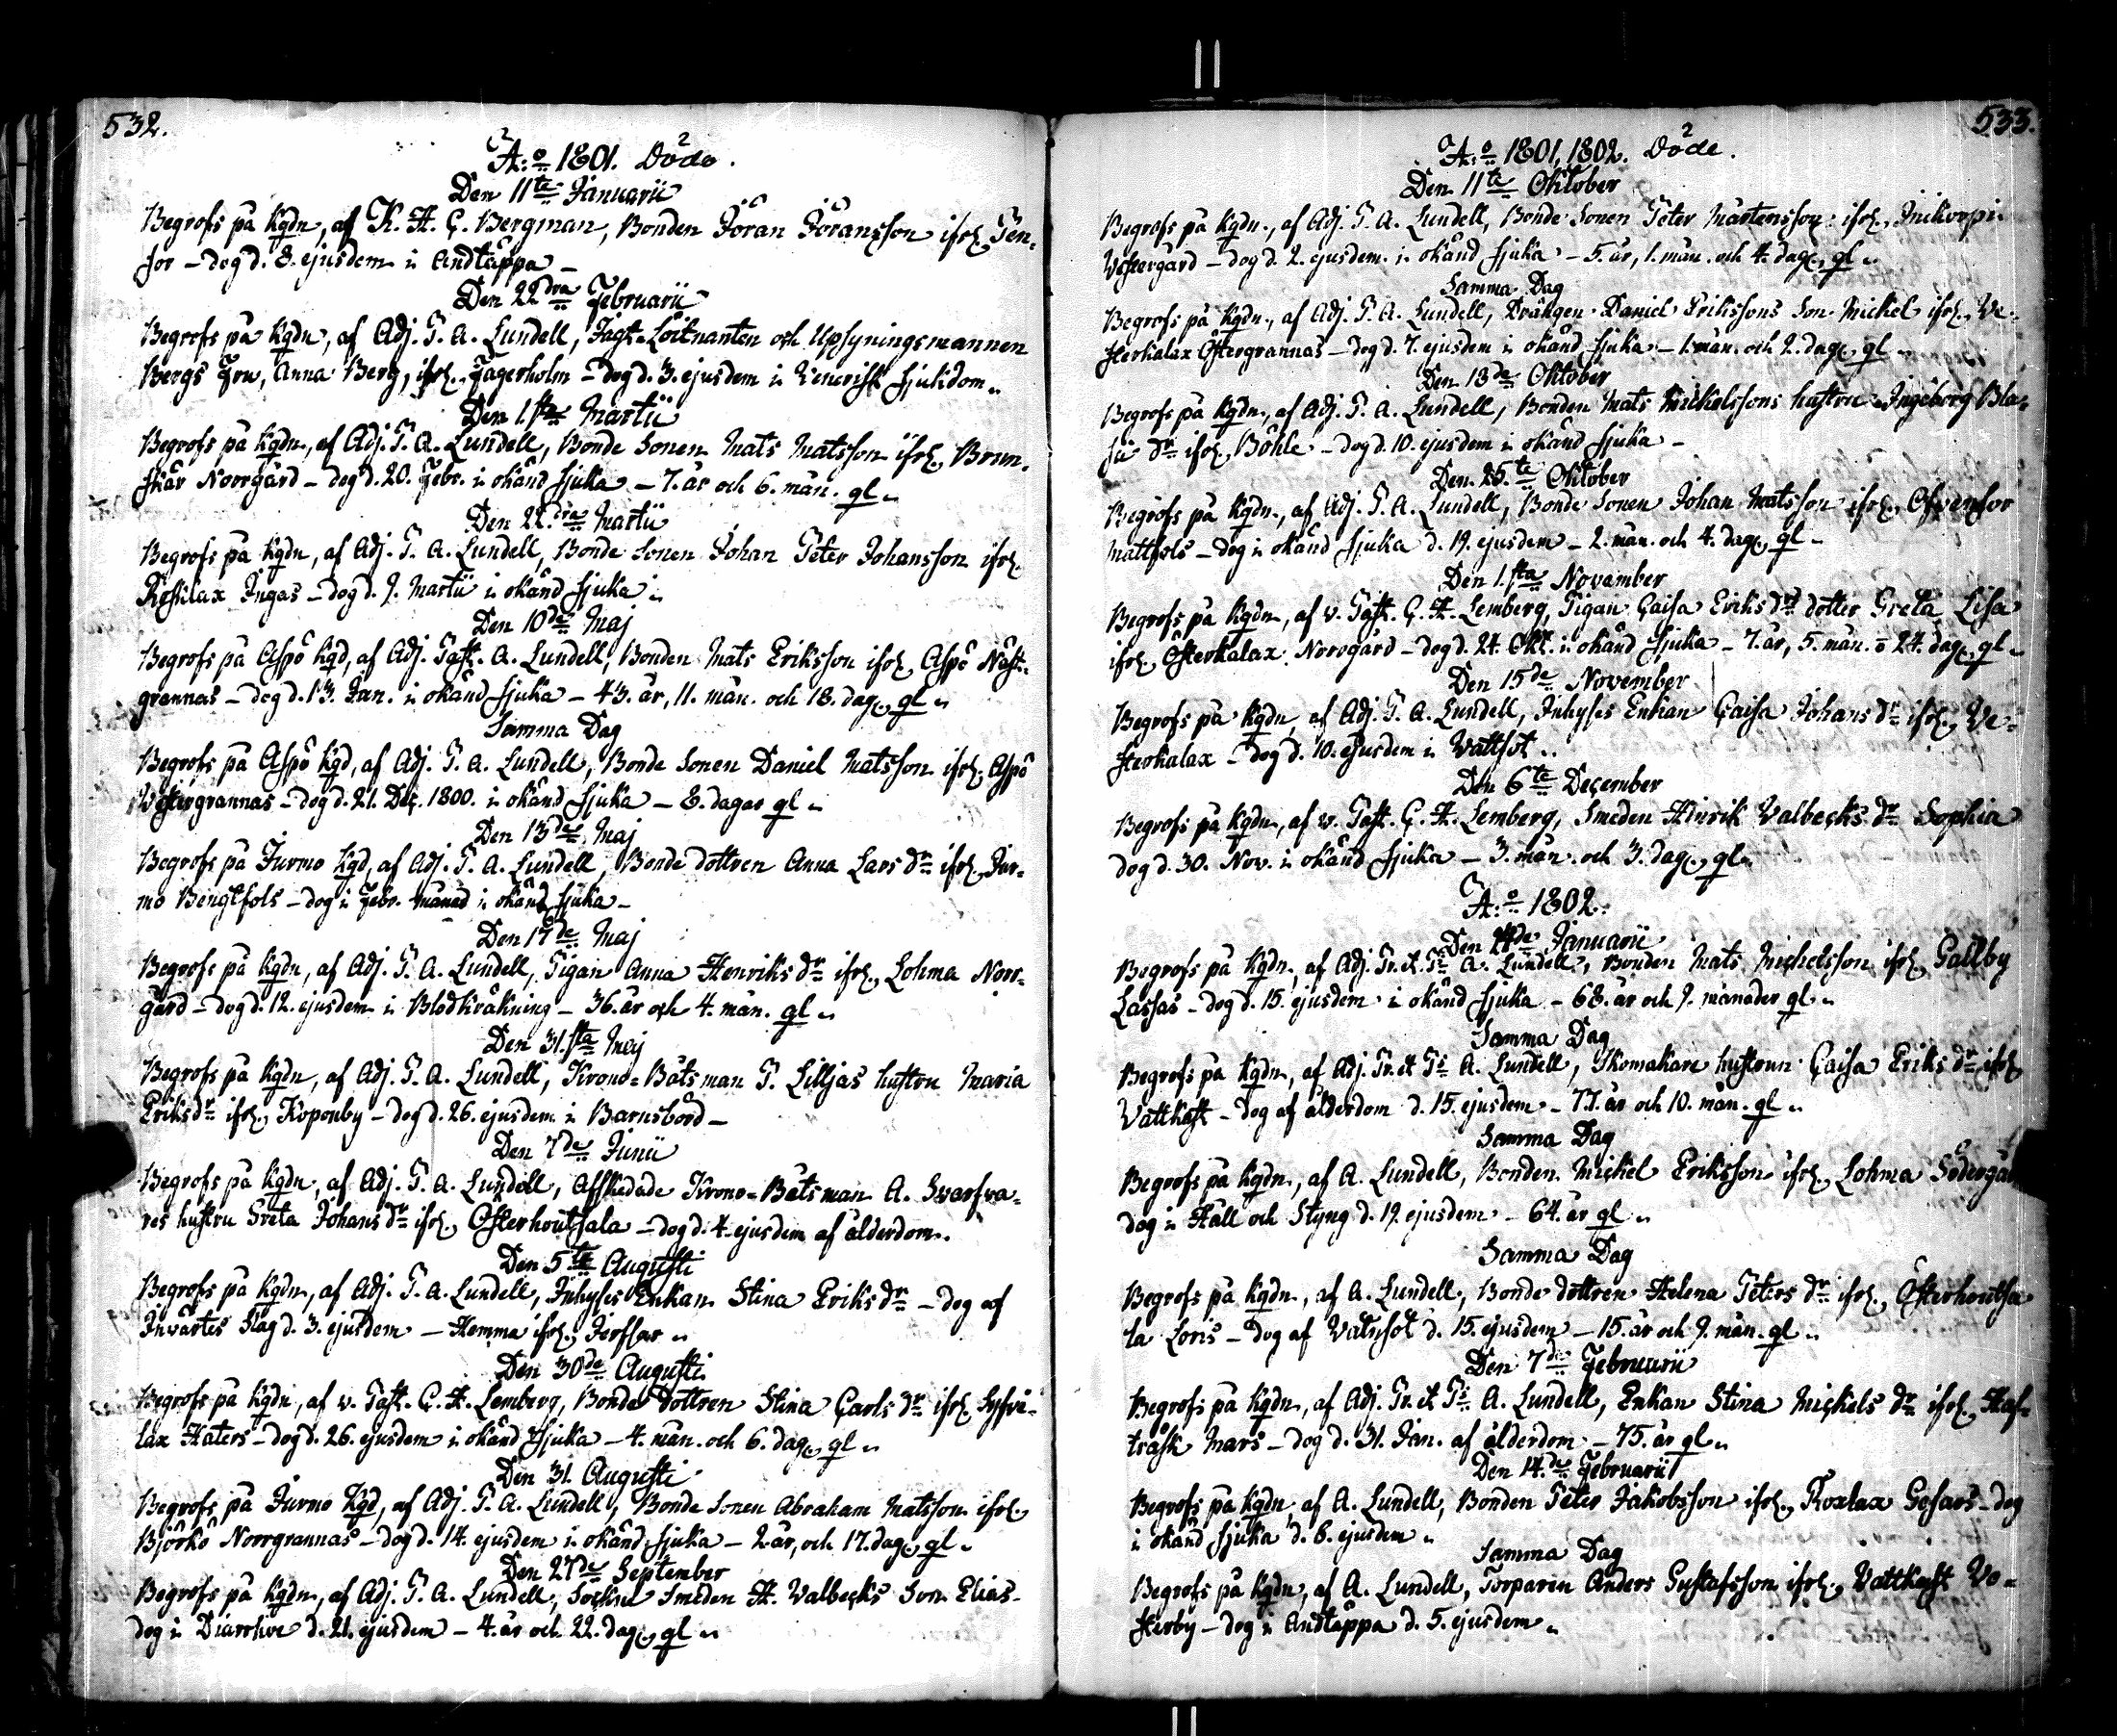 532.
A:o 1801. Döde.
Den 11te Januarii
Begrofs på Kgdn, af K. H. C. Bergman, Bonden Jöran Jöransson ifr. Pen-
sor – dog d. 8. ejusdem i Andtäppa –
Den 22dra Februarii
Begrofs på Kgdn, af Adj. P. A. Lundell, Jagt-Löitnanten och Upsyningsmannen
Bergs Fru, Anna Berg, ifr. Fagerholm – dog d. 3. ejusdem i Venerisk sjukdom.
Den 1.sta Martii
Begrofs på Kgdn, af Adj. P. A. Lundell, Bonde Sonen Mats Matsson ifr. Brun-
skär Norrgård – dog d. 20. Febr. i okänd sjuka – 7. år och 6. mån. gl.
Den 22.dra Martii
Begrofs på Kgdn, af Adj. P. A. Lundell, Bonde Sonen Johan Peter Johansson ifr.
Röskilax Ingas – dog d. 9. Martii i okänd sjuka.
Den 10de Maj
Begrofs på Aspö Kgd, af Adj. Past. A. Lundell, Bonden Mats Eriksson ifr. Aspö Näst-
grannas – dog d. 13. Jan. i okänd sjuka – 43. år, 11. mån. och 18. dag. gl.
Samma Dag
Begrofs på Aspö Kgd, af Adj. P. A. Lundell, Bonde Sonen Daniel Matsson ifr. Aspö
Westergrannas – dog d. 21. Dec. 1800. i okänd sjuka – 8. dagar gl.
Den 13de Maj
Begrofs på Jurmo Kgd, af Adj. P. A. Lundell, Bonde dottren Anna Lars dr ifr. Jur-
mo Bengtsols – dog i Febr. månad i okänd sjuka –
Den 17de Maj
Begrofs på Kgdn, af Adj. P. A. Lundell, Pigan Anna Henriks dr ifr. Lohma Norr-
gård – dog d. 12. ejusdem i Blodkräkning – 36. år och 4. mån. gl.
Den 31.sta Maj
Begrofs på Kgdn, af Adj. P. A. Lundell, Krono-Båtsman P. Lilljas hustru Maria
Eriks dr ifr. Koponby – dog d. 26. ejusdem i Barnsbörd –
Den 7de Junii
Begrofs på Kgdn, af Adj. P. A. Lundell, Afskedade Krono-Båtsman A. Svarfva-
res hustru Greta Johans dr ifr. Österhoutsala – dog d. 4. ejusdem af ålderdom.
Den 5te Augusti
Begrofs på Kgdn, af Adj. P. A. Lundell, Inhyses Enkan Stina Eriks dr – dog af
Invärtes Slag d. 3. ejusdem – Hemma ifr. Jerflax
Den 30de Augusti
Begrofs på Kgdn, af v. Past. C. H. Lemberg, Bonde Dottren Stina Carls dr ifr. Sysvi-
lax Haters – dog d. 26. ejusdem i okänd sjuka – 4. mån. och 6. dag. gl.
Den 31. Augusti
Begrofs på Jurmo Kgd, af Adj. P. A. Lundell, Bonde Sonen Abraham Matsson ifr.
Björkö Norrgrannas – dog d. 14. ejusdem i okänd sjuka – 2. år, och 17. dag. gl.
Den 27de September
Begrofs på Kgdn, af Adj. P. A. Lundell, Sockne Smeden H. Valbecks Son Elias –
dog i Diarrhoe d. 21. ejusdem – 4. år och 22. dag. gl.
533.
A:o 1801, 1802. Döde.
Den 11te Oktober
Begrofs på Kgdn, af Adj. P. A. Lundell, Bonde Sonen Peter Mårtensson ifr. Mikorpi
Westergård – dog d. 2. ejusdem i okänd sjuka – 5. år, 1. mån. och 4. dag. gl.
Samma Dag
Begrofs på Kgdn, af Adj. P. A. Lundell, Drängen Daniel Erikssons Son Mickel ifr. We-
sterkalax Östergrannas – dog d. 7. ejusdem i okänd sjuka – 1. mån. och 2. dag. gl
Den 13de Oktober
Begrofs på Kgdn, af Adj. P. A. Lundell, Bonden Mats Mickelssons hustru Ingeborg Bla-
sii dr ifr. Böhle – dog d. 10. ejusdem i okänd sjuka –
Den 25.te Oktober
Begrofs på Kgdn, af Adj. P. A. Lundell, Bonde Sonen Johan Matsson ifr. Ofvensor
Mattsols – dog i okänd sjuka d. 19. ejusdem – 2. mån. och 4. dag. gl –
Den 1.sta November
Begrofs på Kgdn, af v. Past. C. H. Lemberg, Pigan Caisa Eriks drs dotter Greta Lisa
ifr. Österkalax Norrgård – dog d. 24. Okt. i okänd sjuka – 7. år, 5. mån. o 24. dag. gl
Den 15de November
Begrofs på Kgdn, af Adj. P. A. Lundell, Inhyses Enkan Caisa Johans dr ifr. We-
sterkalax – dog d. 10. ejusdem i Wattsot.
Den 6te December
Begrofs på Kgdn, af v. Past. C. H. Lemberg, Smeden Hinrik Valbecks dr Sophia
dog d. 30. Nov. i okänd sjuka – 3. mån. och 3. dag. gl
A:o 1802.
Den Januarii
Begrofs på Kgdn, af Adj. Pr. et Ps A. Lundell, Bonden Mats Michelsson ifr. Gallby
Lassas – dog d. 15. ejusdem i okänd sjuka – 68. år och 9. månader gl.
Samma Dag
Begrofs på Kgdn, af Adj. Pr. et Ps A. Lundell, Skomakare hustrun Caisa Eriks dr ifr.
Vattkast – dog af ålderdom d. 15. ejusdem – 77. år och 10. mån. gl.
Samma Dag
Begrofs på Kgdn, af A. Lundell, Bonden Mickel Eriksson ifr. Lohma Södergår
dog i Håll och Styng d. 19. ejusdem – 64. år gl.
Samma Dag
Begrofs på Kgdn, af A. Lundell, Bonde dottren Helena Peters dr ifr. Österhoutsa
la Loris – dog af Vatnsot d. 15. ejusdem – 15. år och 9. mån. gl.
Den 7de Februarii
Begrofs på Kgdn, af Adj. Pr. et Ps A. Lundell, Enkan Stina Mickels dr ifr. Haf-
träsk Mars – dog d. 31. Jan. af ålderdom – 75. år gl.
Den 14.de Februarii
Begrofs på Kgdn, af A. Lundell, Bonden Peter Jakobsson ifr. Roxlax Gosars – dog
i okänd sjuka d. 6. ejusdem
Samma Dag
Begrofs på Kgdn, af A. Lundell, Torparen Anders Gustafsson ifr. Vattkast We-
sterby – dog i Andtäppa d. 5. ejusdem